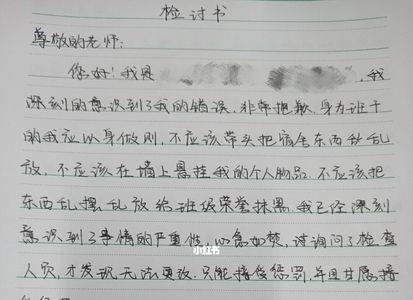 检讨书
尊敬的老师:
您好!我是 ,我
深刻的意识到了我的错误,非常抱歉,身为班干
的我应以身做则,不应该带头把宿舍东西乱乱
放,不应该在墙上悬挂我的个人物品.不应该把
东西乱摆乱放给班级荣誉抹黑.我已经深刻
意识到了事情的严重性,心急如焚,过询问了检查
人员,才发现无法更改,只能接受惩罚,并且甘愿接
小红书